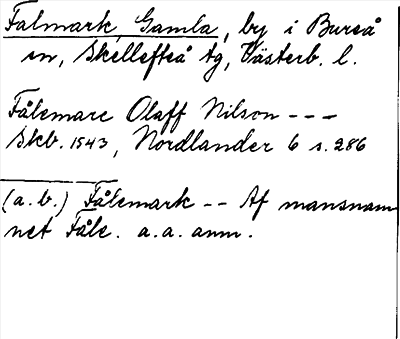 Falmark, Gamla, by i Bureå
sn, Skellefteå tg, Västerb. l.
Fålemarc Olaff Nilson - - -
Skb. 1543, Nordlander 6 s. 286
(a. b.) Fålemark - - Af mansnam
net Fåle. a. a. anm.